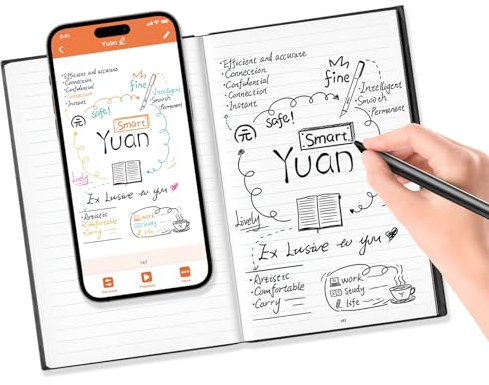 9:41
Yuan
Efficient and accurate
Connection
Confidencial
Connection
Instant
fine
Intelligent
Smooth
Permanent
元
safe!
Smart
Yuan
Lively
Ex Lusive to you
Areistic
Comfortable
Carry
work
Study
& life
167
Playback
More
Efficient and accurate
·Connection
·Confidencial
·Connection
·Instant
fine
·Intelligent
·Smooth
Permanent
元
safe!
·Smart
Yuan
Lively
Ex Lusive to you
·Areistic
·Comfortable
·Carry
work
Study
& life
167